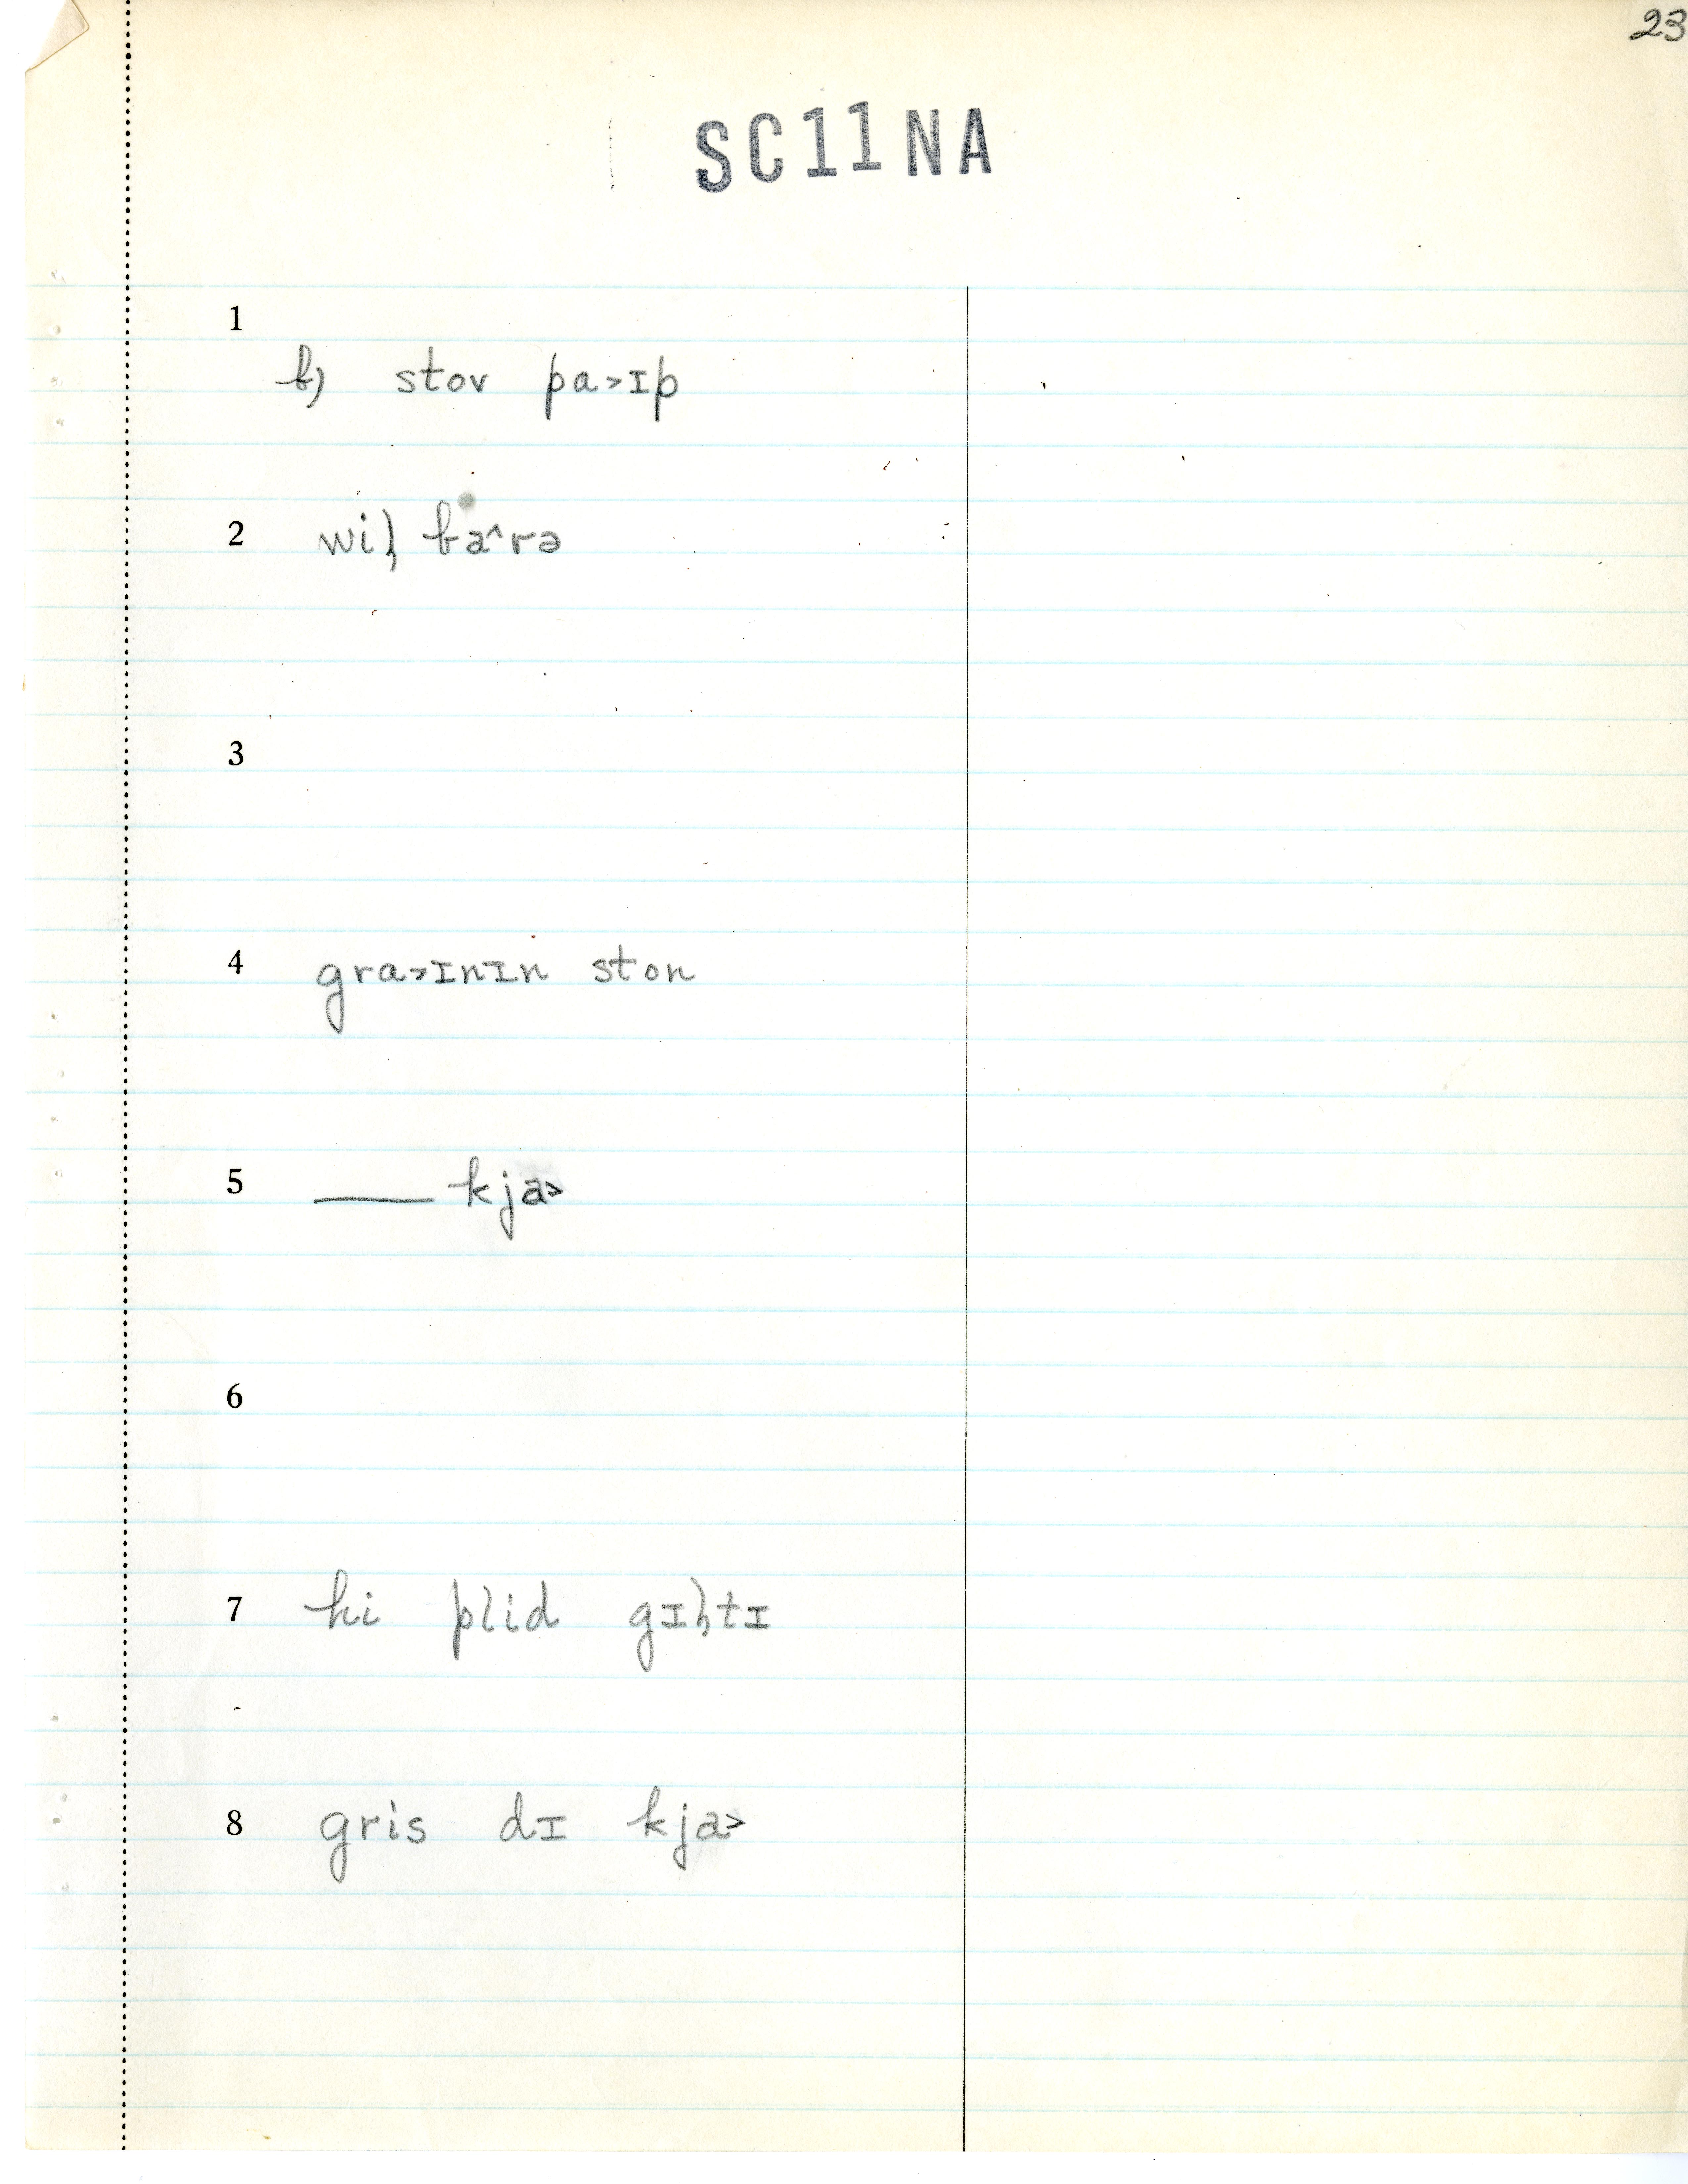 23
SC11NA
1
b) stov pa˃ɪp
2 wil̡ ba^rə
3
4 gra˃ɪnɪn ston
5 —— kja˃
6
7 hi plid gɪl̡tɪ
8 gris dɪ kja˃